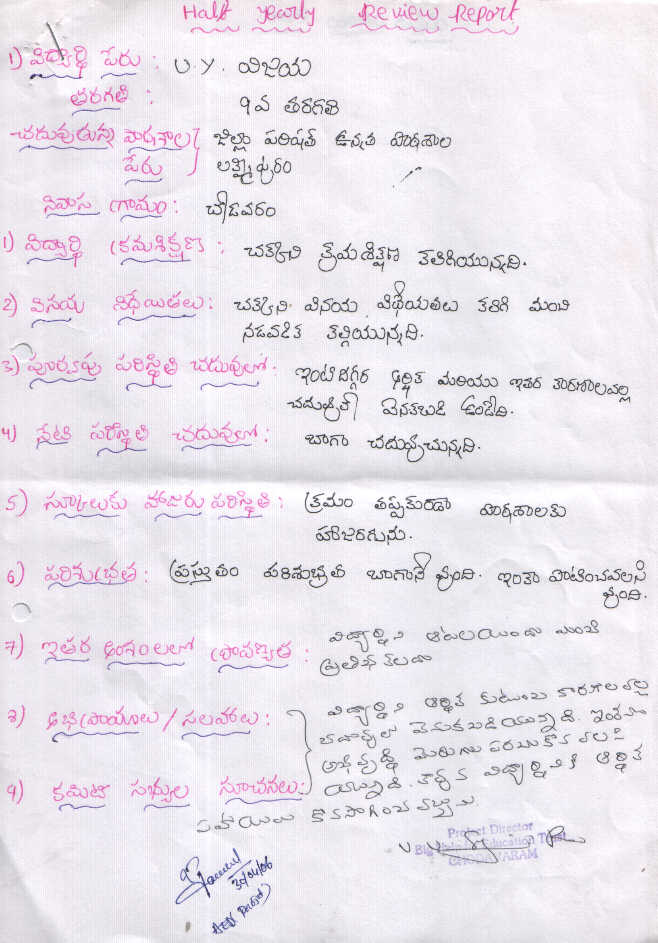 Half yearly Review Report
1) విద్యార్థి పేరు : U.Y. విజయ
తరగతి : 9వ తరగతి
చదువుచున్న పాఠశాల పేరు } జిల్లా పరిషత్ ఉన్నత పాఠశాల
లక్ష్మీపురం
నివాస గ్రామం : చోడవరం
1) విద్యార్థి క్రమశిక్షణ : చక్కని క్రమశిక్షణ కలిగియున్నది.
2) వినయ విధేయతలు : చక్కని వినయ విధేయతలు కలిగి మంచి
నడవడిక కల్గియున్నది.
3) పూర్వపు పరిస్థితి చదువులో : ఇంటిదగ్గర ఆర్థిక మరియు ఇతర కారణాలవల్ల
చదువులో వెనకబడి ఉండేది.
4) నేటి పరిస్థితి చదువులో : బాగా చదువుచున్నది.
5) స్కూలుకు హాజరు పరిస్థితి : క్రమం తప్పకుండా పాఠశాలకు
హాజరగును.
6) పరిశుభ్రత : ప్రస్తుతం పరిశుభ్రత బాగానే వుంది. ఇంకా పాటించవలసి
వుంది.
7) ఇతర అంశాలలో ప్రావణ్యత : విద్యార్థిని ఆటలయందు మంచి
ప్రతిభ కలదు
8) అభిప్రాయాలు / సలహాలు : విద్యార్థిని ఆర్థిక కుటుంబ కారణాల వల్ల
చదువులో వెనుకబడియున్నది. ఇంకనూ
అభివృద్ధి మెరుగు పరుచుకోవలసి
9) కమిటీ సభ్యుల సూచనలు : యున్నది. కావున విద్యార్థినికి ఆర్థిక
సహాయం కొనసాగించవచ్చును.
Project Director
Education Trust
CHODAVARAM
30/04/06